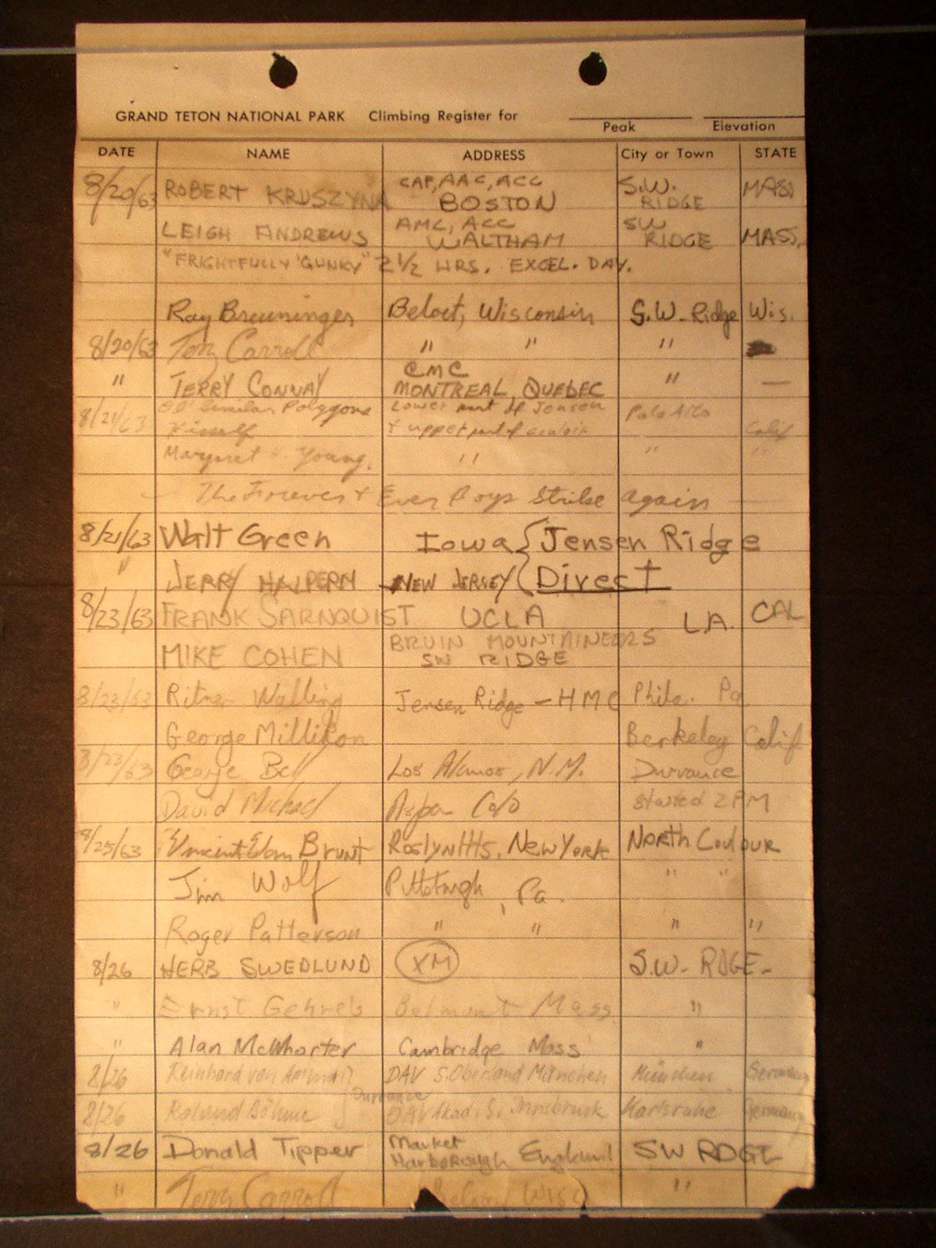 GRAND TETON NATIONAL PARK Climbing Register for
Peak Elevation
DATE NAME ADDRESS City or Town STATE
8/20/63 ROBERT KRUSZYNA CAF, AAC, ACC BOSTON S.W. RIDGE MASS
LEIGH ANDREWS AMC, ACC WALTHAM SW RIDGE MASS.
"FRIGHTFULLY 'GUNKY'" 2½ HRS. EXCEL. DAY.
Ray Breuninger Beloit, Wisconsin S.W. Ridge Wis.
8/20/63 Terry Carroll " " "
" TERRY CONWAY CMC MONTREAL, QUEBEC " —
8/21/63 Polygons Lower part of Jensen Palo Alto
Himself + upper part of Calif
Margaret Young. " " "
The Forever + Ever Boys Strike again
8/21/63 Walt Green Iowa { Jensen Ridge
" JERRY HALPERN NEW JERSEY { Direct
8/23/63 FRANK SARNQUIST UCLA L.A. CAL
MIKE COHEN BRUIN MOUNTAINEERS SW RIDGE
8/23/63 Ritner Walling Jensen Ridge – HMC Phila. Pa
George Millikan Berkeley Calif
8/23/63 George Bell Los Alamos, N.M. Durrance
David Michael Aspen Colo started 2 PM
8/25/63 Vincent Van Brunt Roslyn Hts, New York North Couloir
Jim Wolf Pittsburgh, Pa. " "
Roger Patterson " " " "
8/26 HERB SWEDLUND XM S.W. RDGE-
" Ernst Gehrels Belmont Mass "
" Alan McWhorter Cambridge Mass "
8/26 Reinhard von DAV S. Oberland München München Germany
Durrance
8/26 Roland Böhme DAV Akad. S. Innsbruck Karlsruhe Germany
8/26 Donald Tipper Market Harborough England SW RDGE
" Terry Carroll Beloit Wisc "